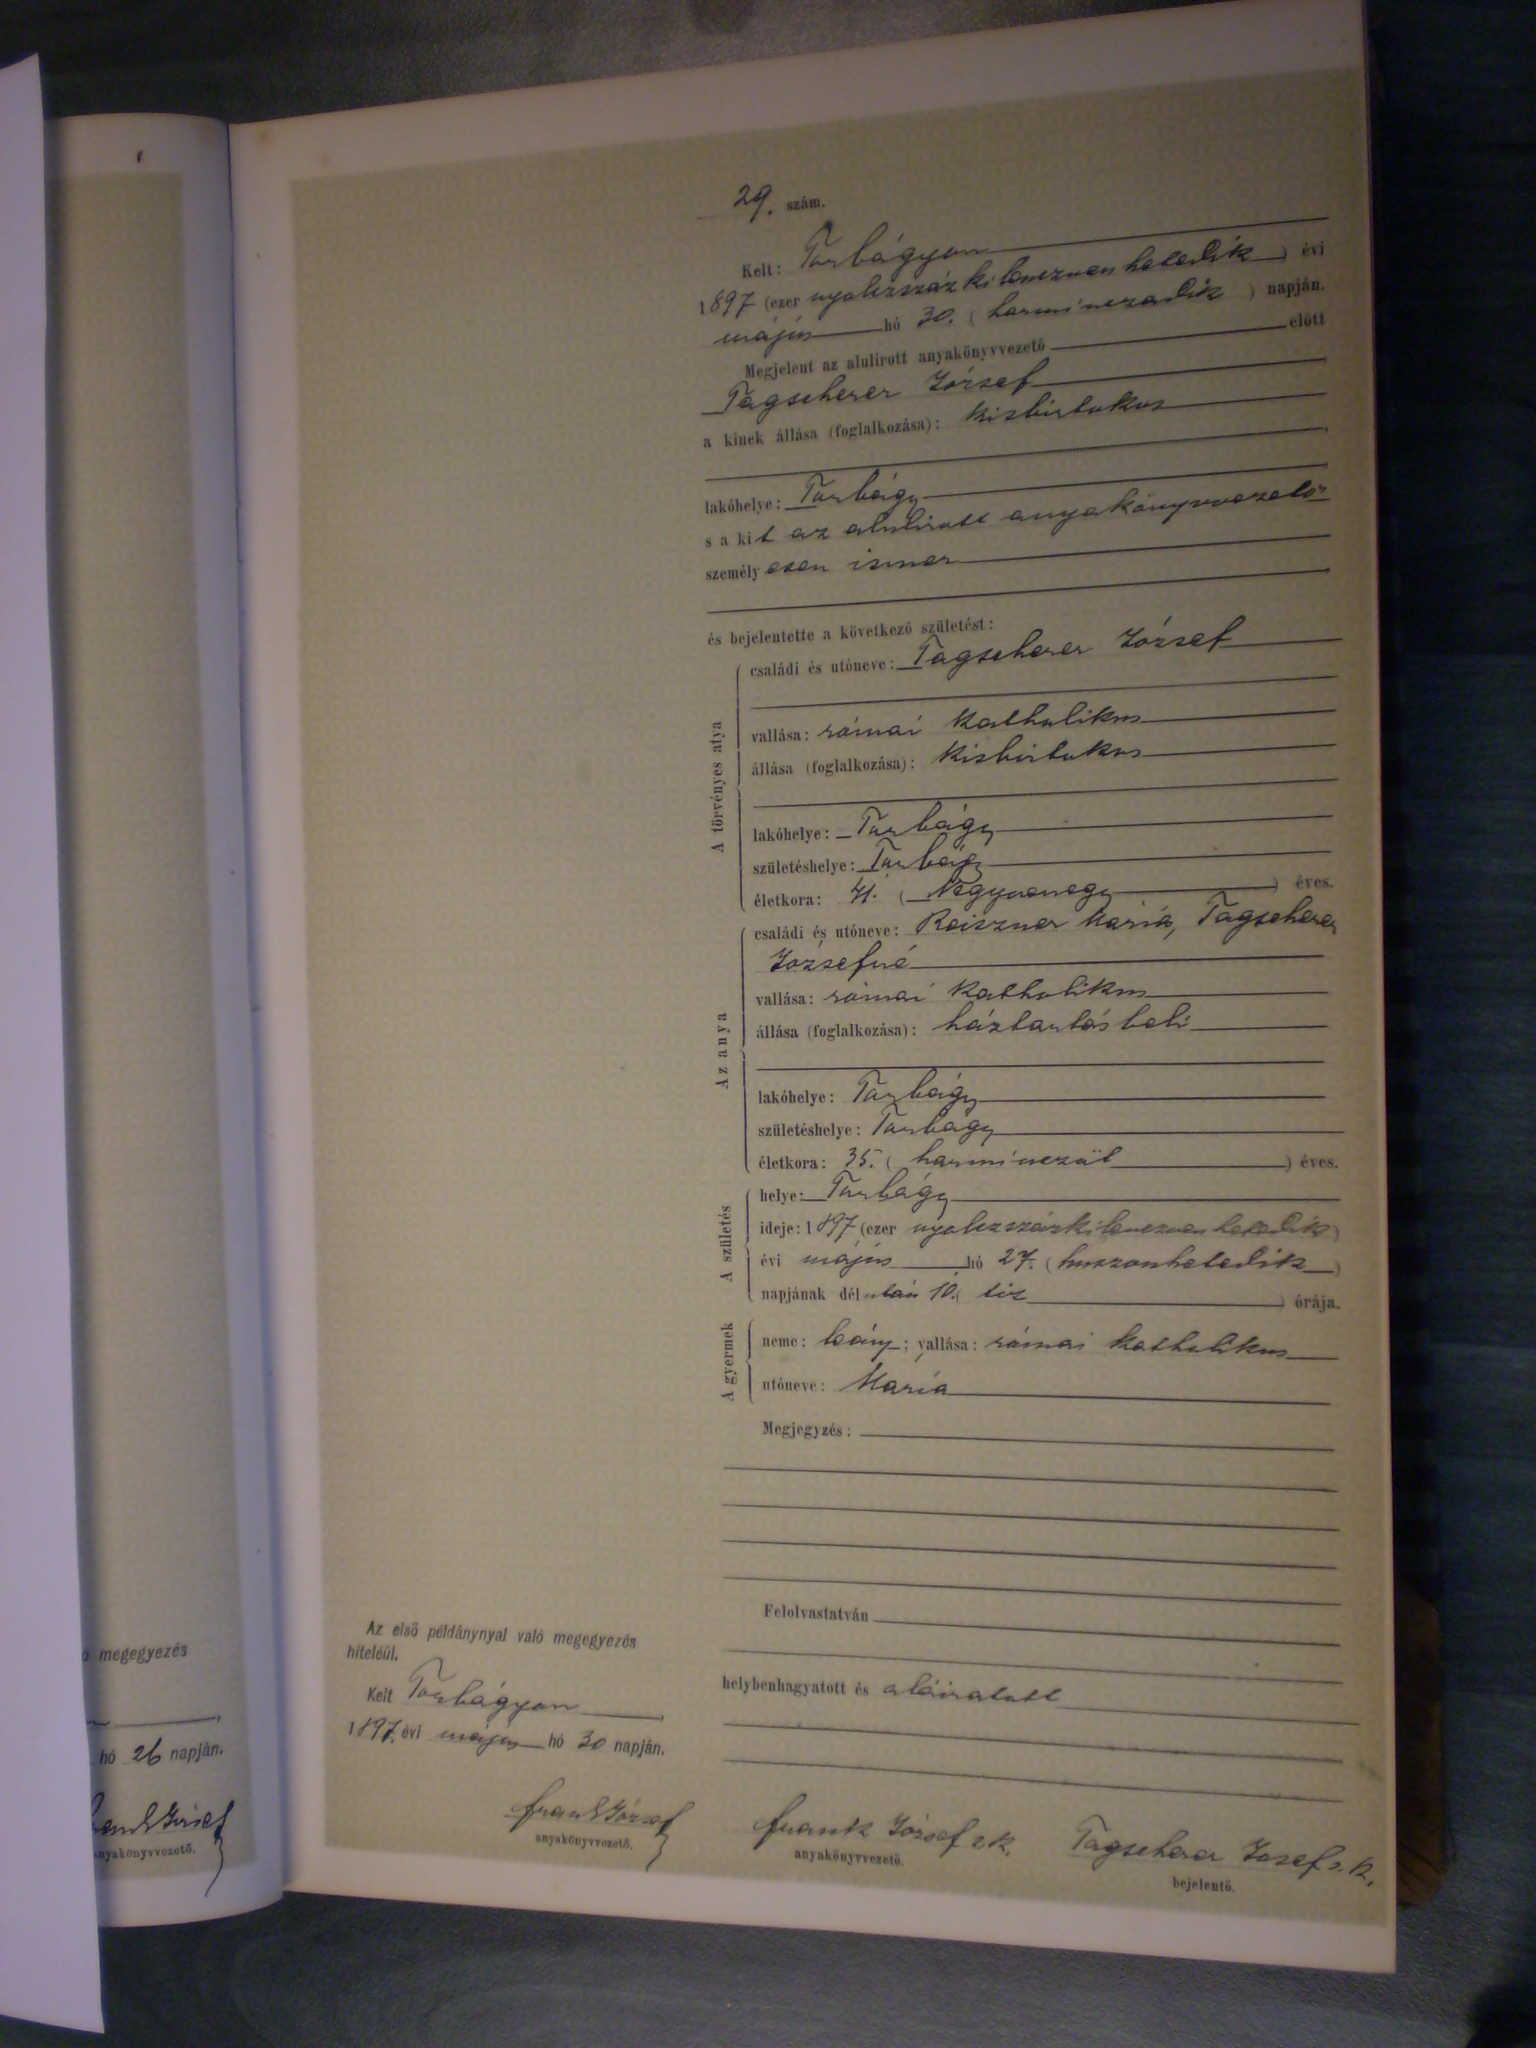 29. szám.
Kelt: Torbágyon
1897 (ezer nyolczszázkilenczven hetedik) évi
május hó 30. (harminczadik) napján.
Megjelent az alulirott anyakönyvvezető előtt
Tagscherer József
a kinek állása (foglalkozása): kisbirtokos
lakóhelye: Torbágy
s a kit az alulirott anyakönyvvezető
személyesen ismer
és bejelentette a következő születést:
A törvényes atya
családi és utóneve: Tagscherer József
vallása: római katholikus
állása (foglalkozása): kisbirtokos
lakóhelye: Torbágy
születéshelye: Torbágy
életkora: 41. (Negyvenegy) éves.
Az anya
családi és utóneve: Reiszner Mária, Tagscherer
Józsefné
vallása: római katholikus
állása (foglalkozása): háztartásbeli
lakóhelye: Torbágy
születéshelye: Torbágy
életkora: 35. (harminczöt) éves.
A születés
helye: Torbágy
ideje: 1897 (ezer nyolczszázkilenczven hetedik)
évi május hó 27. (huszonhetedik)
napjának délután 10. (tiz) órája.
A gyermek
neme: leány; vallása: római katholikus
utóneve: Mária
Megjegyzés:
Felolvastatván
helybenhagyatott és aláiratott
Az első példánynyal való megegyezés
hiteléül.
Kelt Torbágyon
1897. évi május hó 30 napján.
Frank József
anyakönyvvezető.
Frank József s. k.
anyakönyvvezető.
Tagscherer József s. k.
bejelentő.
megegyezés
hó 26 napján.
József
anyakönyvvezető.